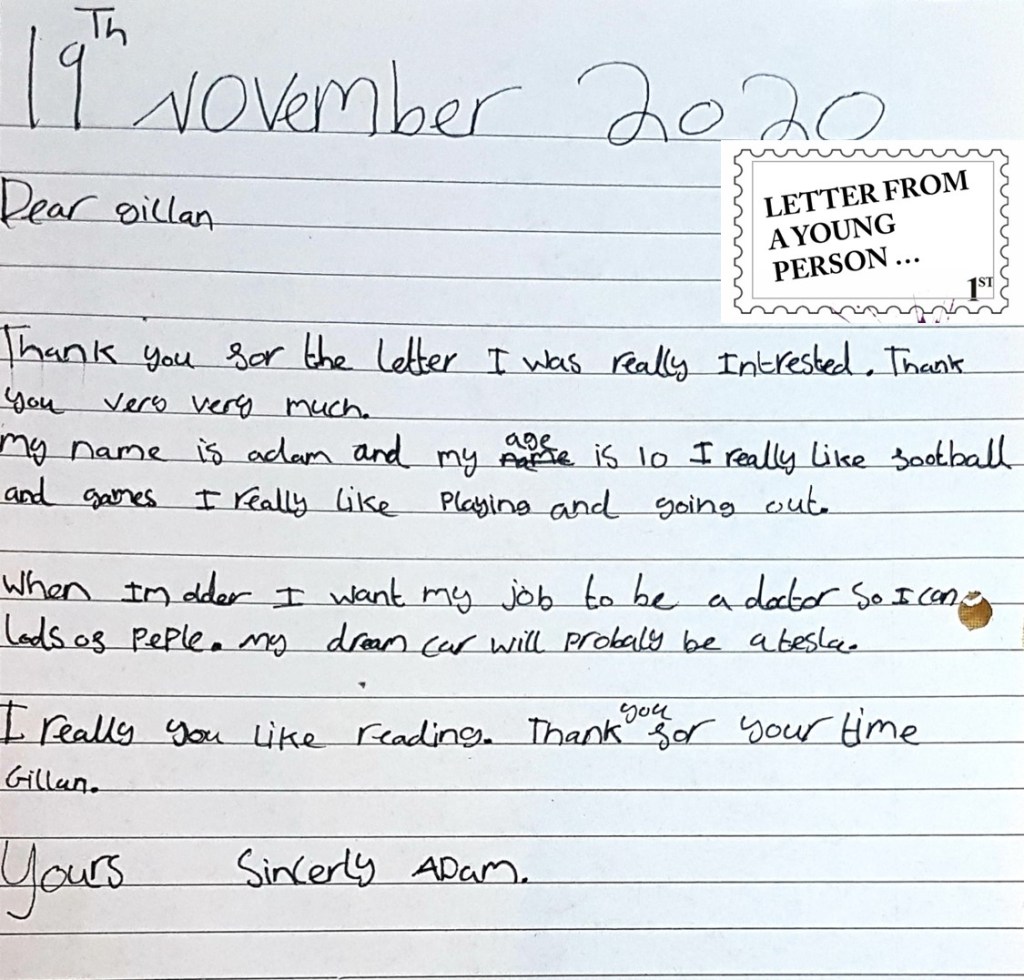 19Th November 2020
Dear gillan
LETTER FROM
A YOUNG
PERSON ...
1ST
Thank you for the letter I was really Intrested. Thank
you very very much.
my name is adam and my age is 10 I really like football
and games I really like Playing and going out.
When Im older I want my job to be a doctor So I can
Lods of PePle. my dream car will Probaly be a tesla.
I really you Like reading. Thank you for your time
Gillan.
Yours Sincerly ADam.